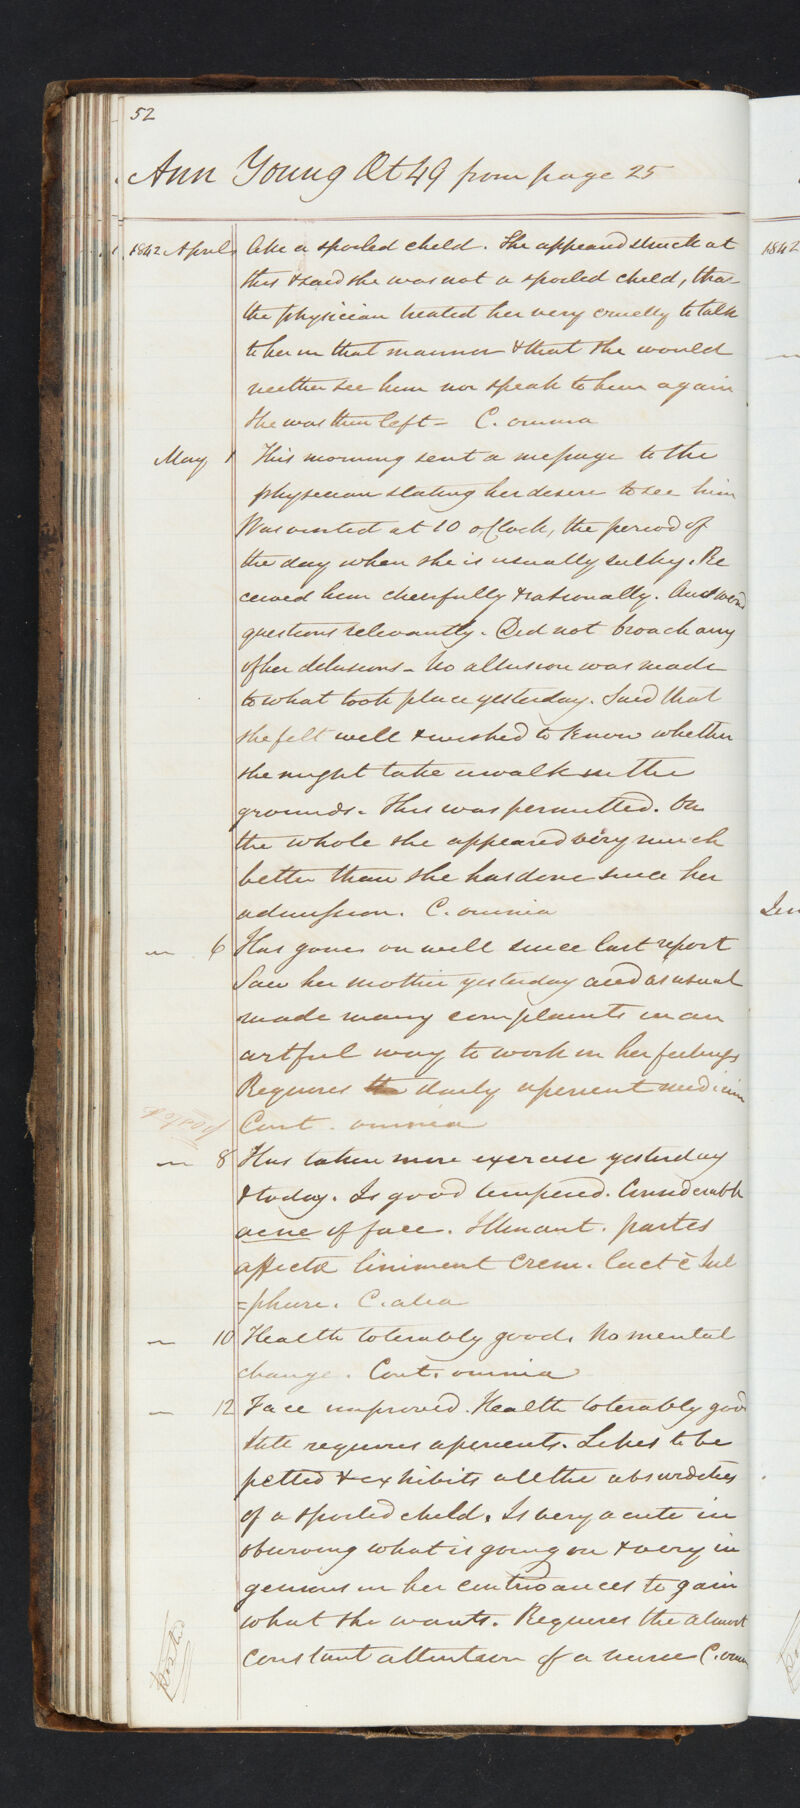 52
Ann Young Æt 49 from page 25
1842 April like a spoiled child. She appeared struck at
this & said she was not a spoiled child, that
the physician treated her very cruelly to talk
to her in that manner & that she would
neither see him nor speak to him again
She was then left - C. omnia
May 1 This morning sent a message to the
physician stating her desire to see him
Was visited at 10 oClock, the period of
the day when she is usually sulky. Re
ceived him cheerfully & rationally. Answered
questions relevantly. Did not broach any
of her delusions - No allusion was made
to what took place yesterday. Said that
she felt well & wished to know whether
she might take a walk in the
grounds. This was permitted. On
the whole she appeared very much
better than she has done since her
admission. C. omnia
— 6 Has gone on well since last report
Saw her mother yesterday and as usual
made many complaints in an
artful way to work on her feelings
Requires daily aperient medicine
Cont. omnia
posted
— 8 Has taken more exercise yesterday
& today. Is good tempered. Considerable
acne of face. Illinant. partes
affectæ liniment Crem. lact c̄ Sul
=phure. C. alia
— 10 Health tolerably good. No mental
change. Cont. omnia
— 12 Face improved. Health tolerably good
Still requires aperients. Likes to be
petted & exhibits all the absurdities
of a spoiled child. Is very acute in
observing what is going on & very in
genious in her contrivances to gain
what she wants. Requires the almost
constant attention of a nurse C. omn
posted
1842